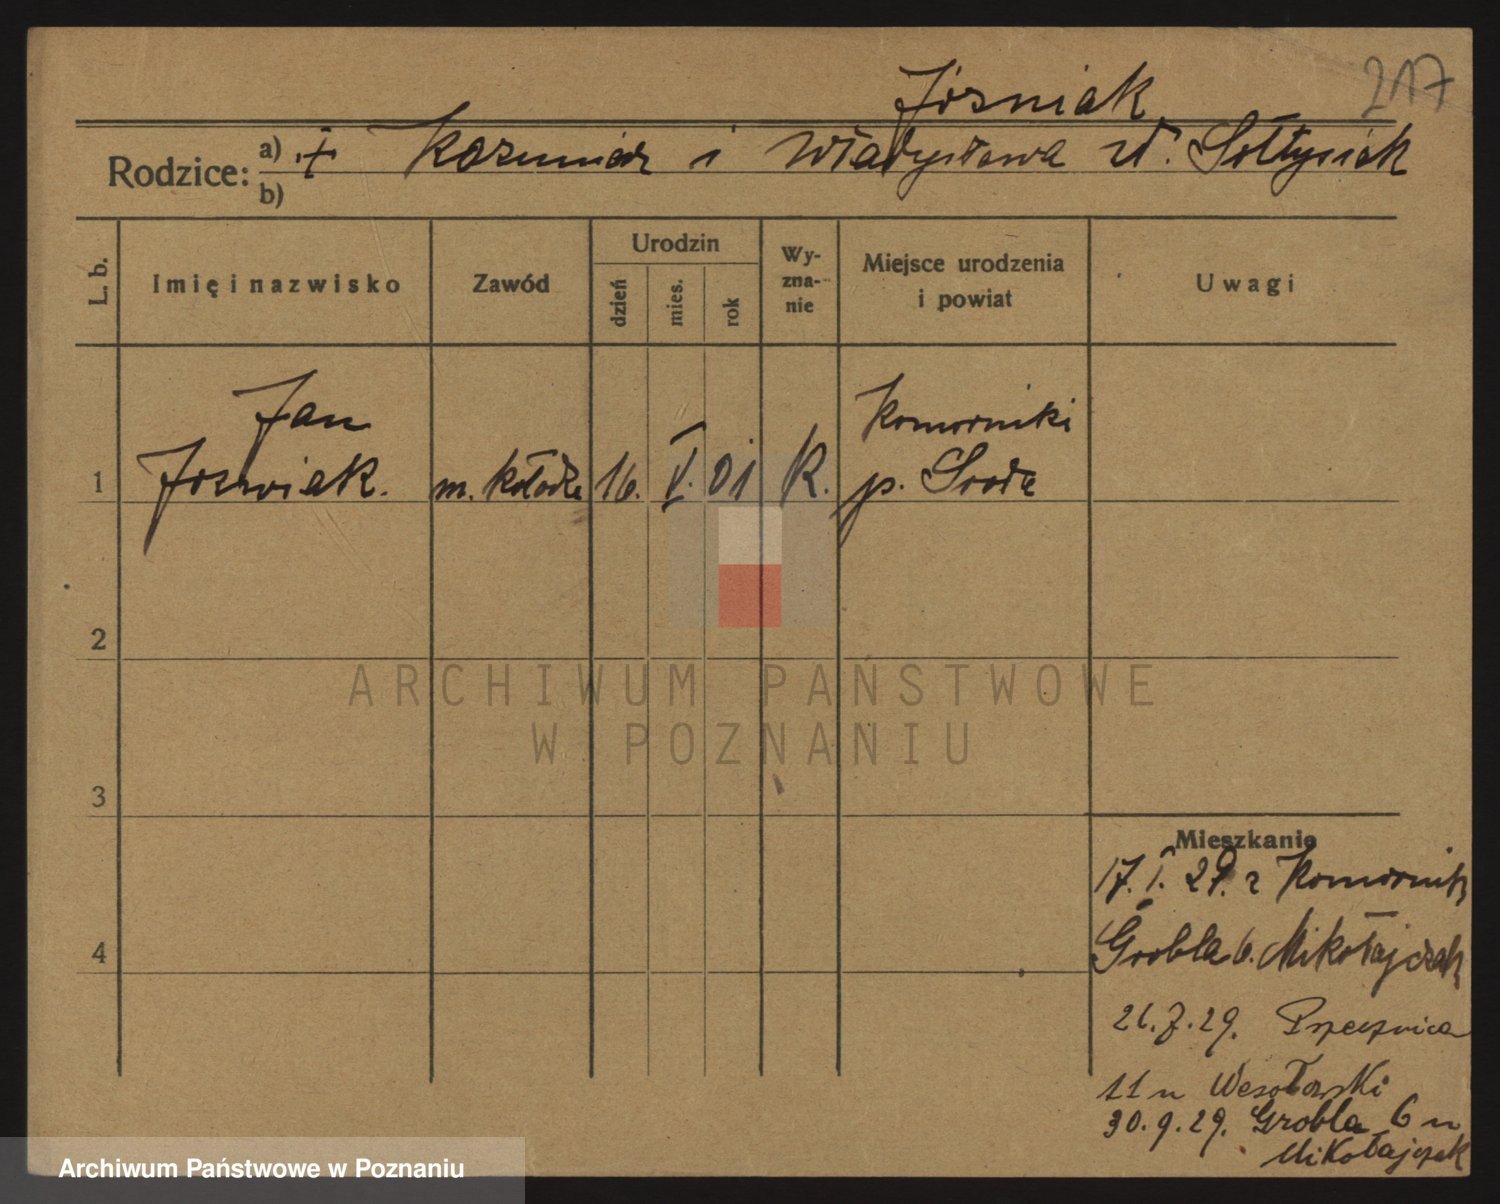 217
Jóźwiak
Rodzice: a) + Kazimierz i Władysława z d. Sołtysiak
b)
L. b.
Imię i nazwisko
Zawód
Urodzin
dzień
mies.
rok
Wy-
zna-
nie
Miejsce urodzenia
i powiat
Uwagi
Jan
Komorniki
1 Jozwiak. m. kołodz. 16. V. 01 R. p. Sroda
2
3
4
Mieszkanie
17. I. 29. z Komornik
Grobla 6. Mikołajczak
26. 7. 29.
11 u Wesołowski
30. 9. 29. Grobla 6 u
Mikołajczak
ARCHIWUM PAŃSTWOWE
W POZNANIU
Archiwum Państwowe w Poznaniu